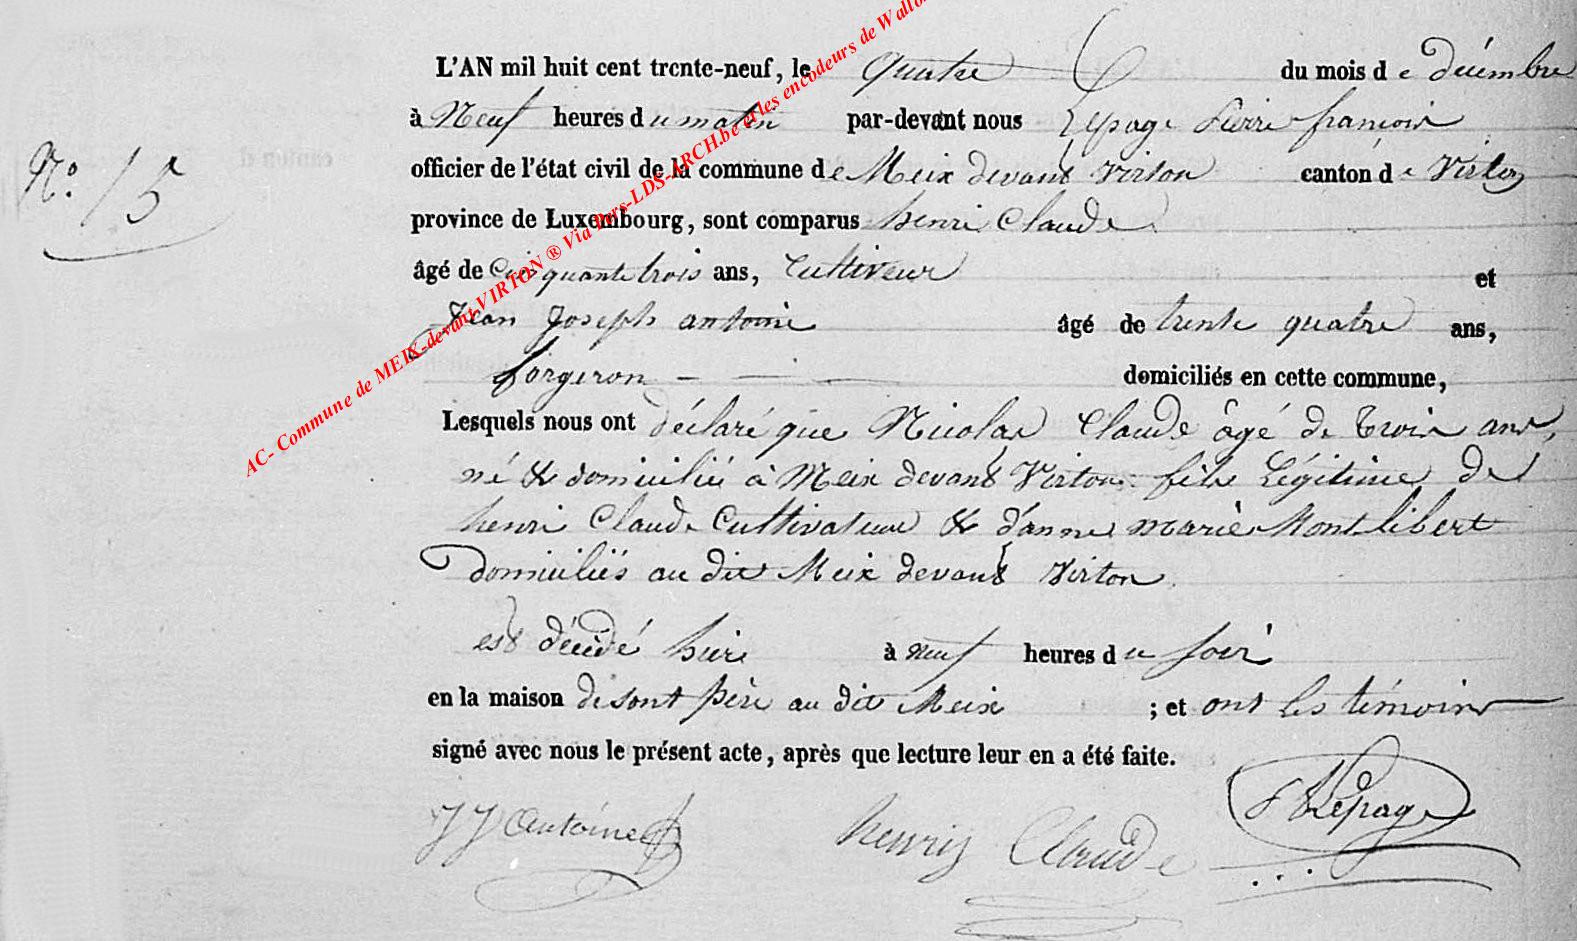 AC- Commune de MEIX-devant-VIRTON ® Via Pers-LDS-ARCH.be et les encodeurs de
L'AN mil huit cent trente-neuf, le quatre du mois de décembre
à Neuf heures du matin par-devant nous Lepage Pierre françois
officier de l'état civil de la commune de Meix devant Virton canton de Virton
province de Luxembourg, sont comparus henri Claude
âgé de Cinquante trois ans, Cultiveur et
Jean Joseph antoine âgé de trente quatre ans,
forgeron — — — domiciliés en cette commune,
Lesquels nous ont déclaré que Nicolas Claude âgé de Trois ans,
né & domicilié à Meix devant Virton fils Légitime de
henri Claude Cultivateur & d'anne marie Montlibert
domiciliés au dit Meix devant Virton.
N.° 15
est décédé hier à neuf heures du soir
en la maison de sont père au dit Meix ; et ont les témoins
signé avec nous le présent acte, après que lecture leur en a été faite.
JJ Antoine henry Claude Lepage